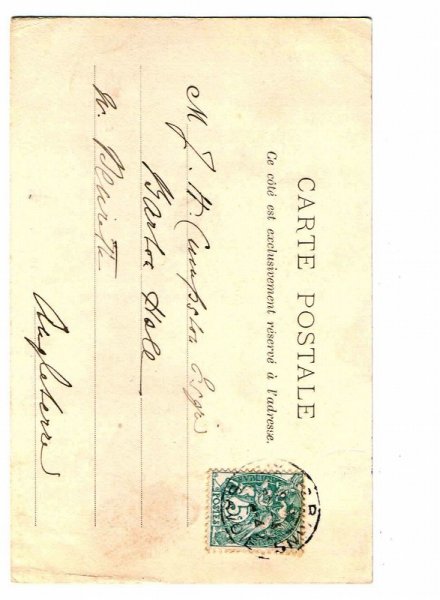 CARTE POSTALE
Ce côté est exclusivement réservé à l'adresse.
M J. H. Cumpston Esqr
Barton Hall
N.
Angleterre
POSTES